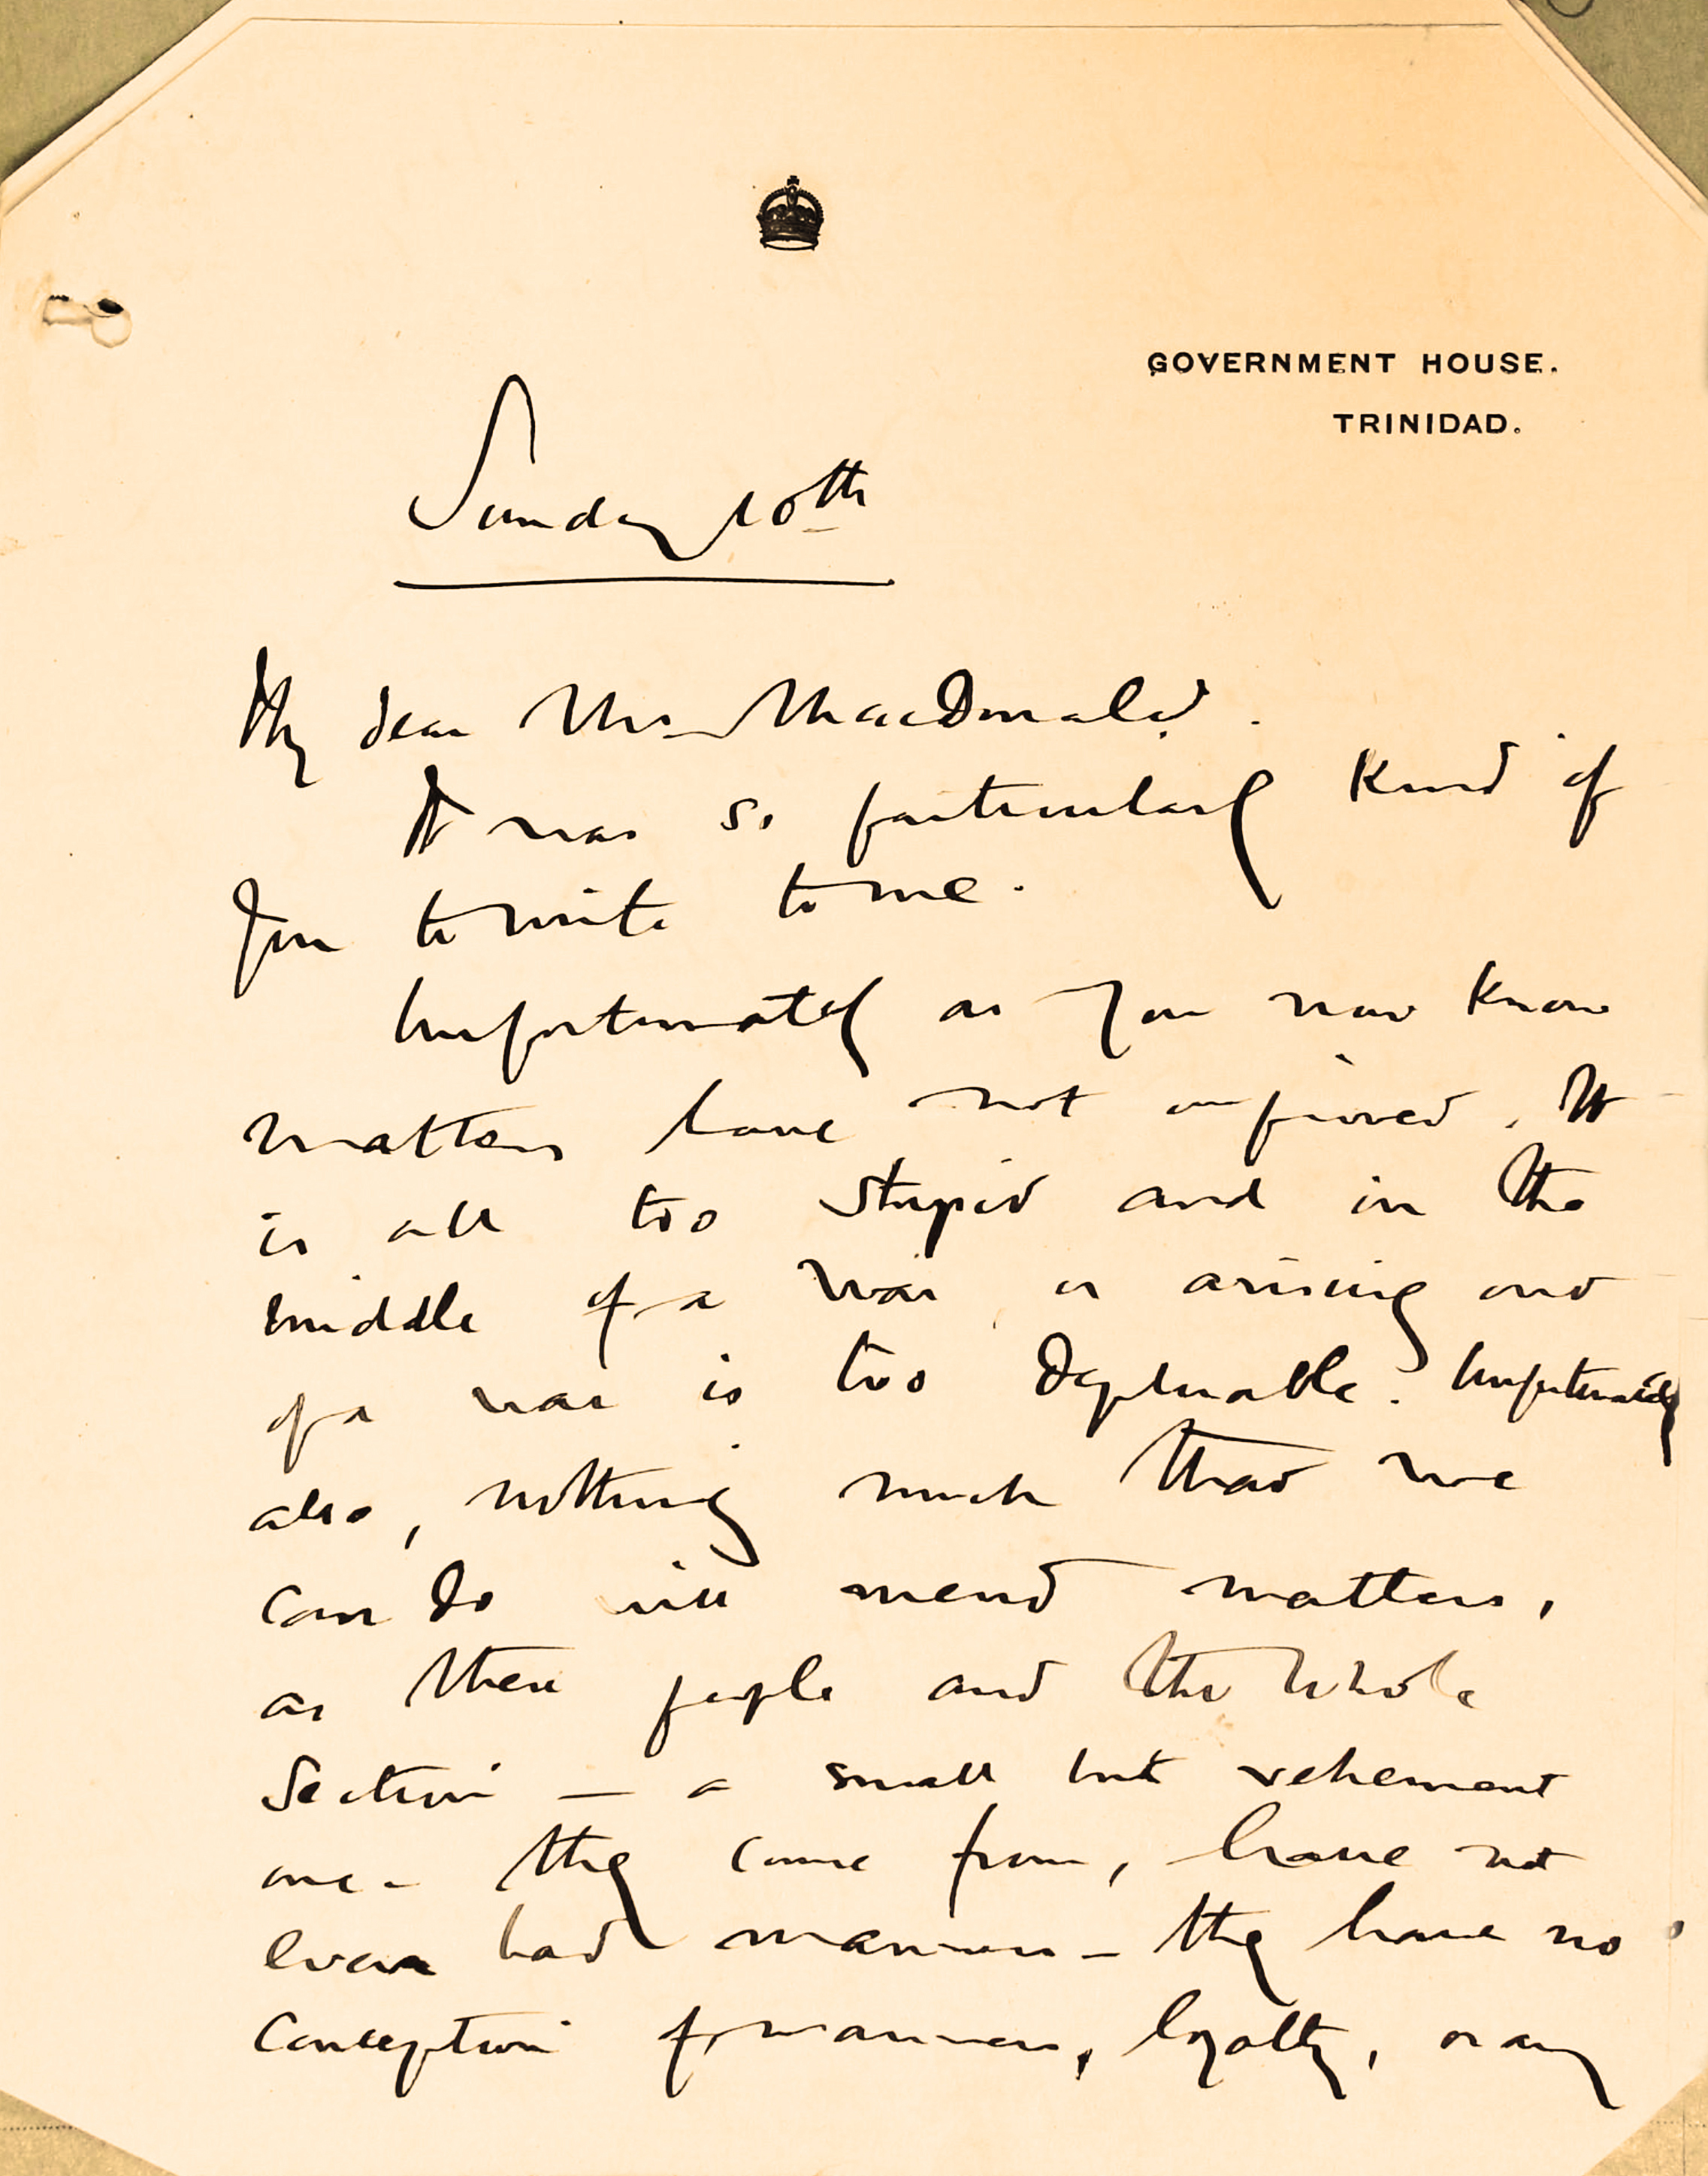 GOVERNMENT HOUSE.
TRINIDAD.
Sunday 10th
My dear Mr MacDonald.
It was so particularly kind of
you to write to me.
Unfortunately as you now know
matters have not improved. It
is all too stupid and in the
middle of a war, or arising out
of a war is too deplorable. Unfortunately
also, nothing much that we
can do will mend matters,
as these people and the whole
section — a small but vehement
one - they come from, have not
even bad manners — they have no
conception of manners, loyalty, or any